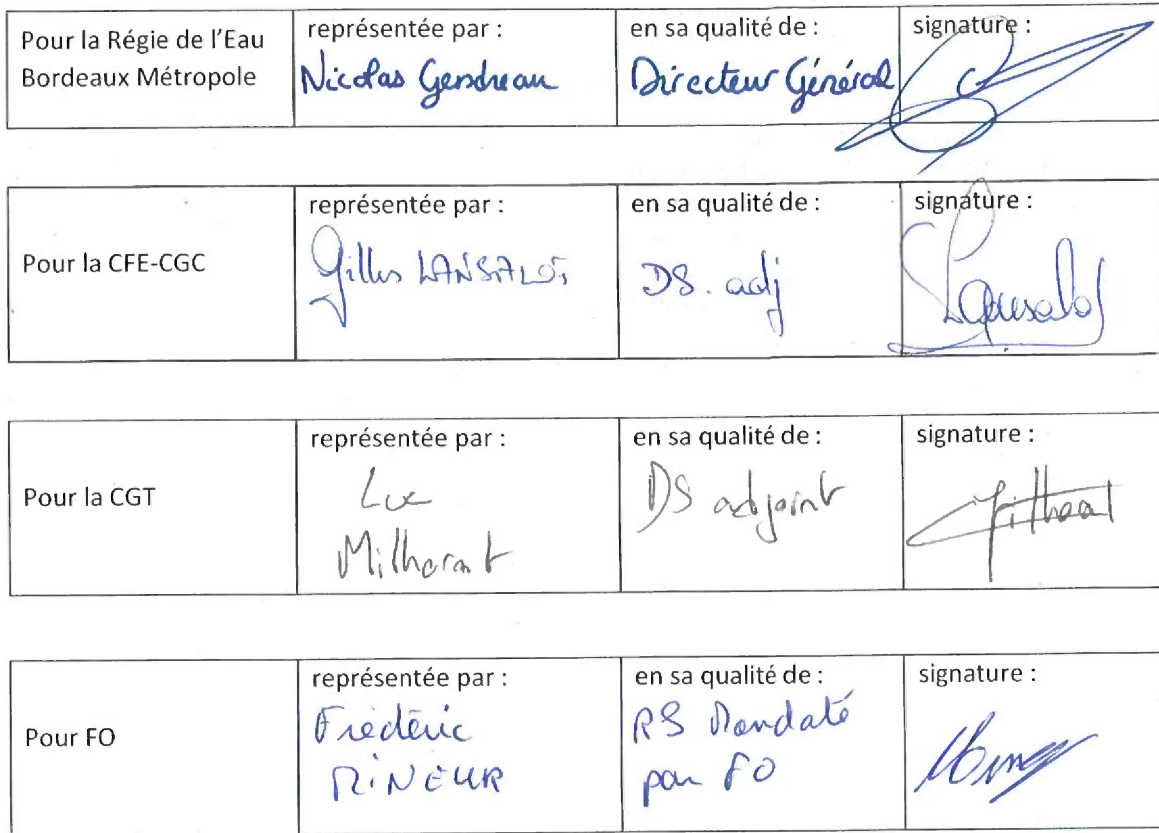 Pour la Régie de l'Eau
Bordeaux Métropole
représentée par :
Nicolas Gendreau
en sa qualité de :
Directeur Général
signature :
Pour la CFE-CGC
représentée par :
Gilles LANSALOT
en sa qualité de :
DS. adj
signature :
Pour la CGT
représentée par :
Luc
Milhorat
en sa qualité de :
DS adjoint
signature :
Pour FO
représentée par :
Frédéric
MINEUR
en sa qualité de :
RS Mandaté
par FO
signature :